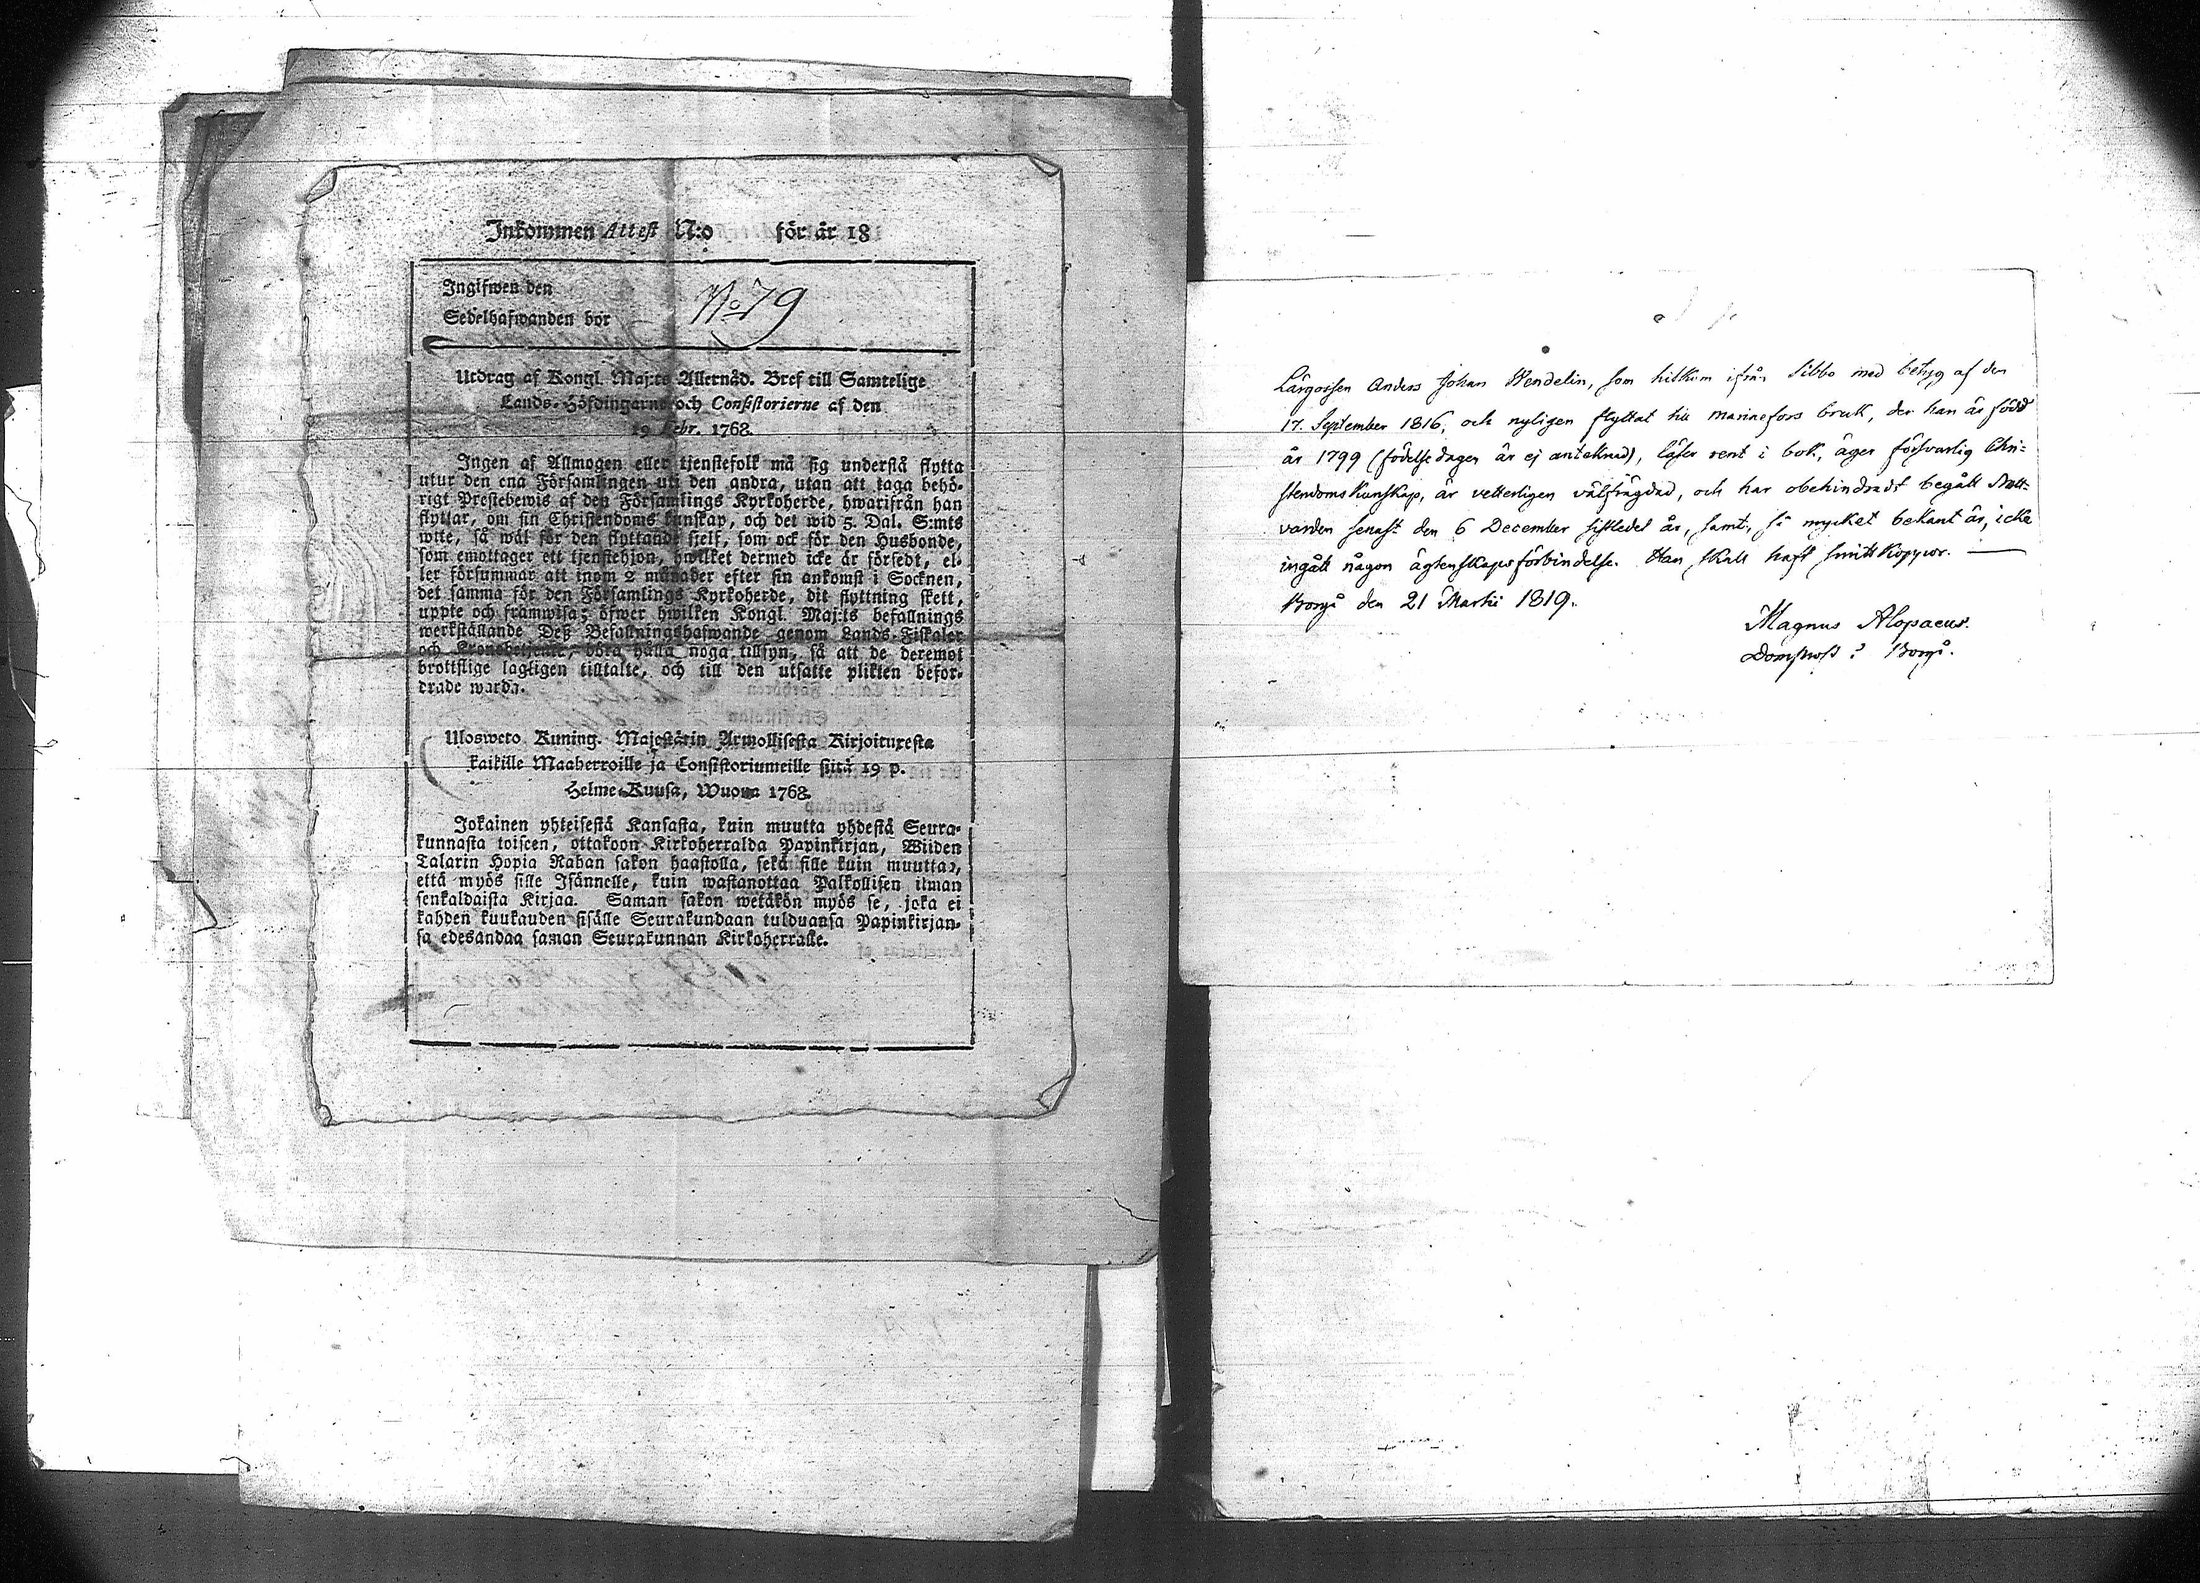 Inkommen Attest N:o för år 18
Ingifwen den
Sedelhafwanden bor
No 79
Utdrag af Kongl. Maj:ts Allernåd. Bref till Samtelige
Lands-Höfdingarne och Consistorierne af den
19 Febr. 1768.
Ingen af Allmogen eller tjenstefolk må sig understå flytta
utur den ena Församlingen uti den andra, utan att taga behö-
rigt Prestebewis af den Församlings Kyrkoherde, hwarifrån han
flyttar, om sin Christendoms kunskap, och det wid 5. Dal. S:mts
wite, så wäl för den flyttande sjelf, som ock för den Husbonde,
som emottager ett tjenstehjon, hwilket dermed icke är försedt, el-
ler försummar att inom 2 månader efter sin ankomst i Socknen,
det samma för den Församlings Kyrkoherde, dit flyttning skett,
uppte och framwisa; öfwer hwilken Kongl. Maj:ts befallnings
werkställande Deß Befallningshafwande genom Lands-Fiskaler
och Kronobetjente, böra hålla noga tillsyn, så att de deremot
brottslige lagligen tilltalte, och till den utsatte plikten befor-
drade warda.
Ulosweto Kuning. Majestätin Armollisesta Kirjoituxesta
kaikille Maaherroille ja Consistoriumeille siitä 19 p.
Helme-Kuusa, Wuona 1768.
Jokainen yhteisestä Kansasta, kuin muutta yhdestä Seura-
kunnasta toiseen, ottakoon Kirkoherralda Papinkirjan, Wiiden
Talarin Hopia Rahan sakon haastolla, sekä sille kuin muuttaa,
että myös sille Isännelle, kuin wastanottaa Palkollisen ilman
senkaldaista Kirjaa. Saman sakon wetäkön myös se, joka ei
kahden kuukauden sisälle Seurakundaan tulduansa Papinkirjan-
sa edesandaa saman Seurakunnan Kirkoherralle.
Lärgossen Anders Johan Wendelin, som hitkom ifrån Sibbo med betyg af den
17. September 1816, och nyligen flyttat till Marinefors bruk, der han är född
år 1799 (födelsedagen är ej anteknad), läser rent i bok, äger försvarlig Chri-
stendoms Kunskap, är vetterligen välfrägdad, och har obehindradt begått Natt-
varden senast den 6 December sistledet år, samt, så mycket bekant är, icke
ingått någon ägtenskapsförbindelse. Han skall haft smittkoppor. —
Borgå den 21 Martii 1819.
Magnus Alopaeus.
Domprost i Borgå.